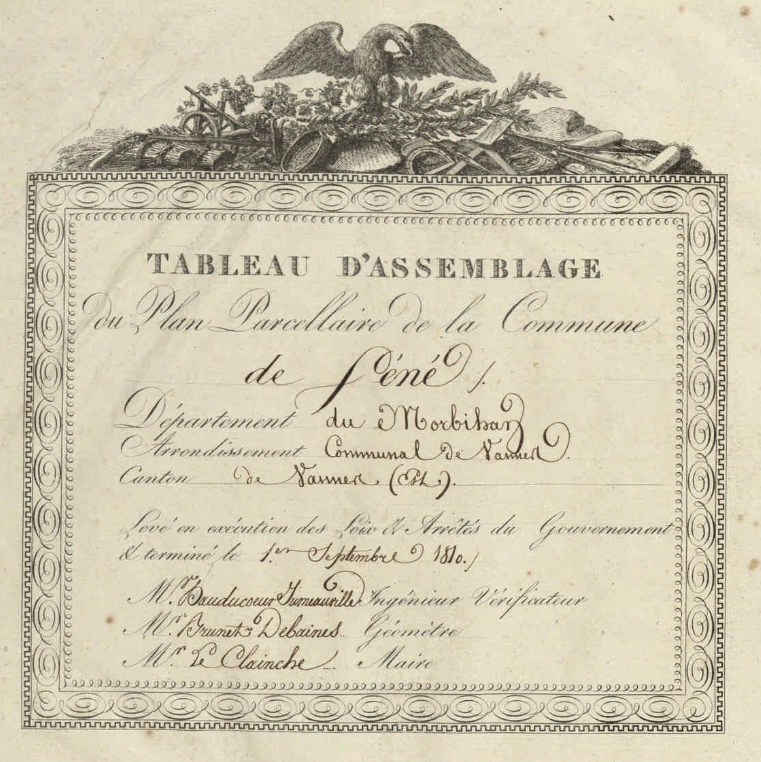 TABLEAU D'ASSEMBLAGE
du Plan Parcellaire de la Commune
de Séné
Département du Morbihan
Arrondissement Communal de Vannes.
Canton de Vannes. (Est.).
Levé en exécution des Loix & Arrêtés du Gouvernement
& terminé le 1.er Septembre 1810.
Mr. Ingénieur Vérificateur
Mr. Brunet-Debaines Géomètre
Mr. Le Clainche. Maire